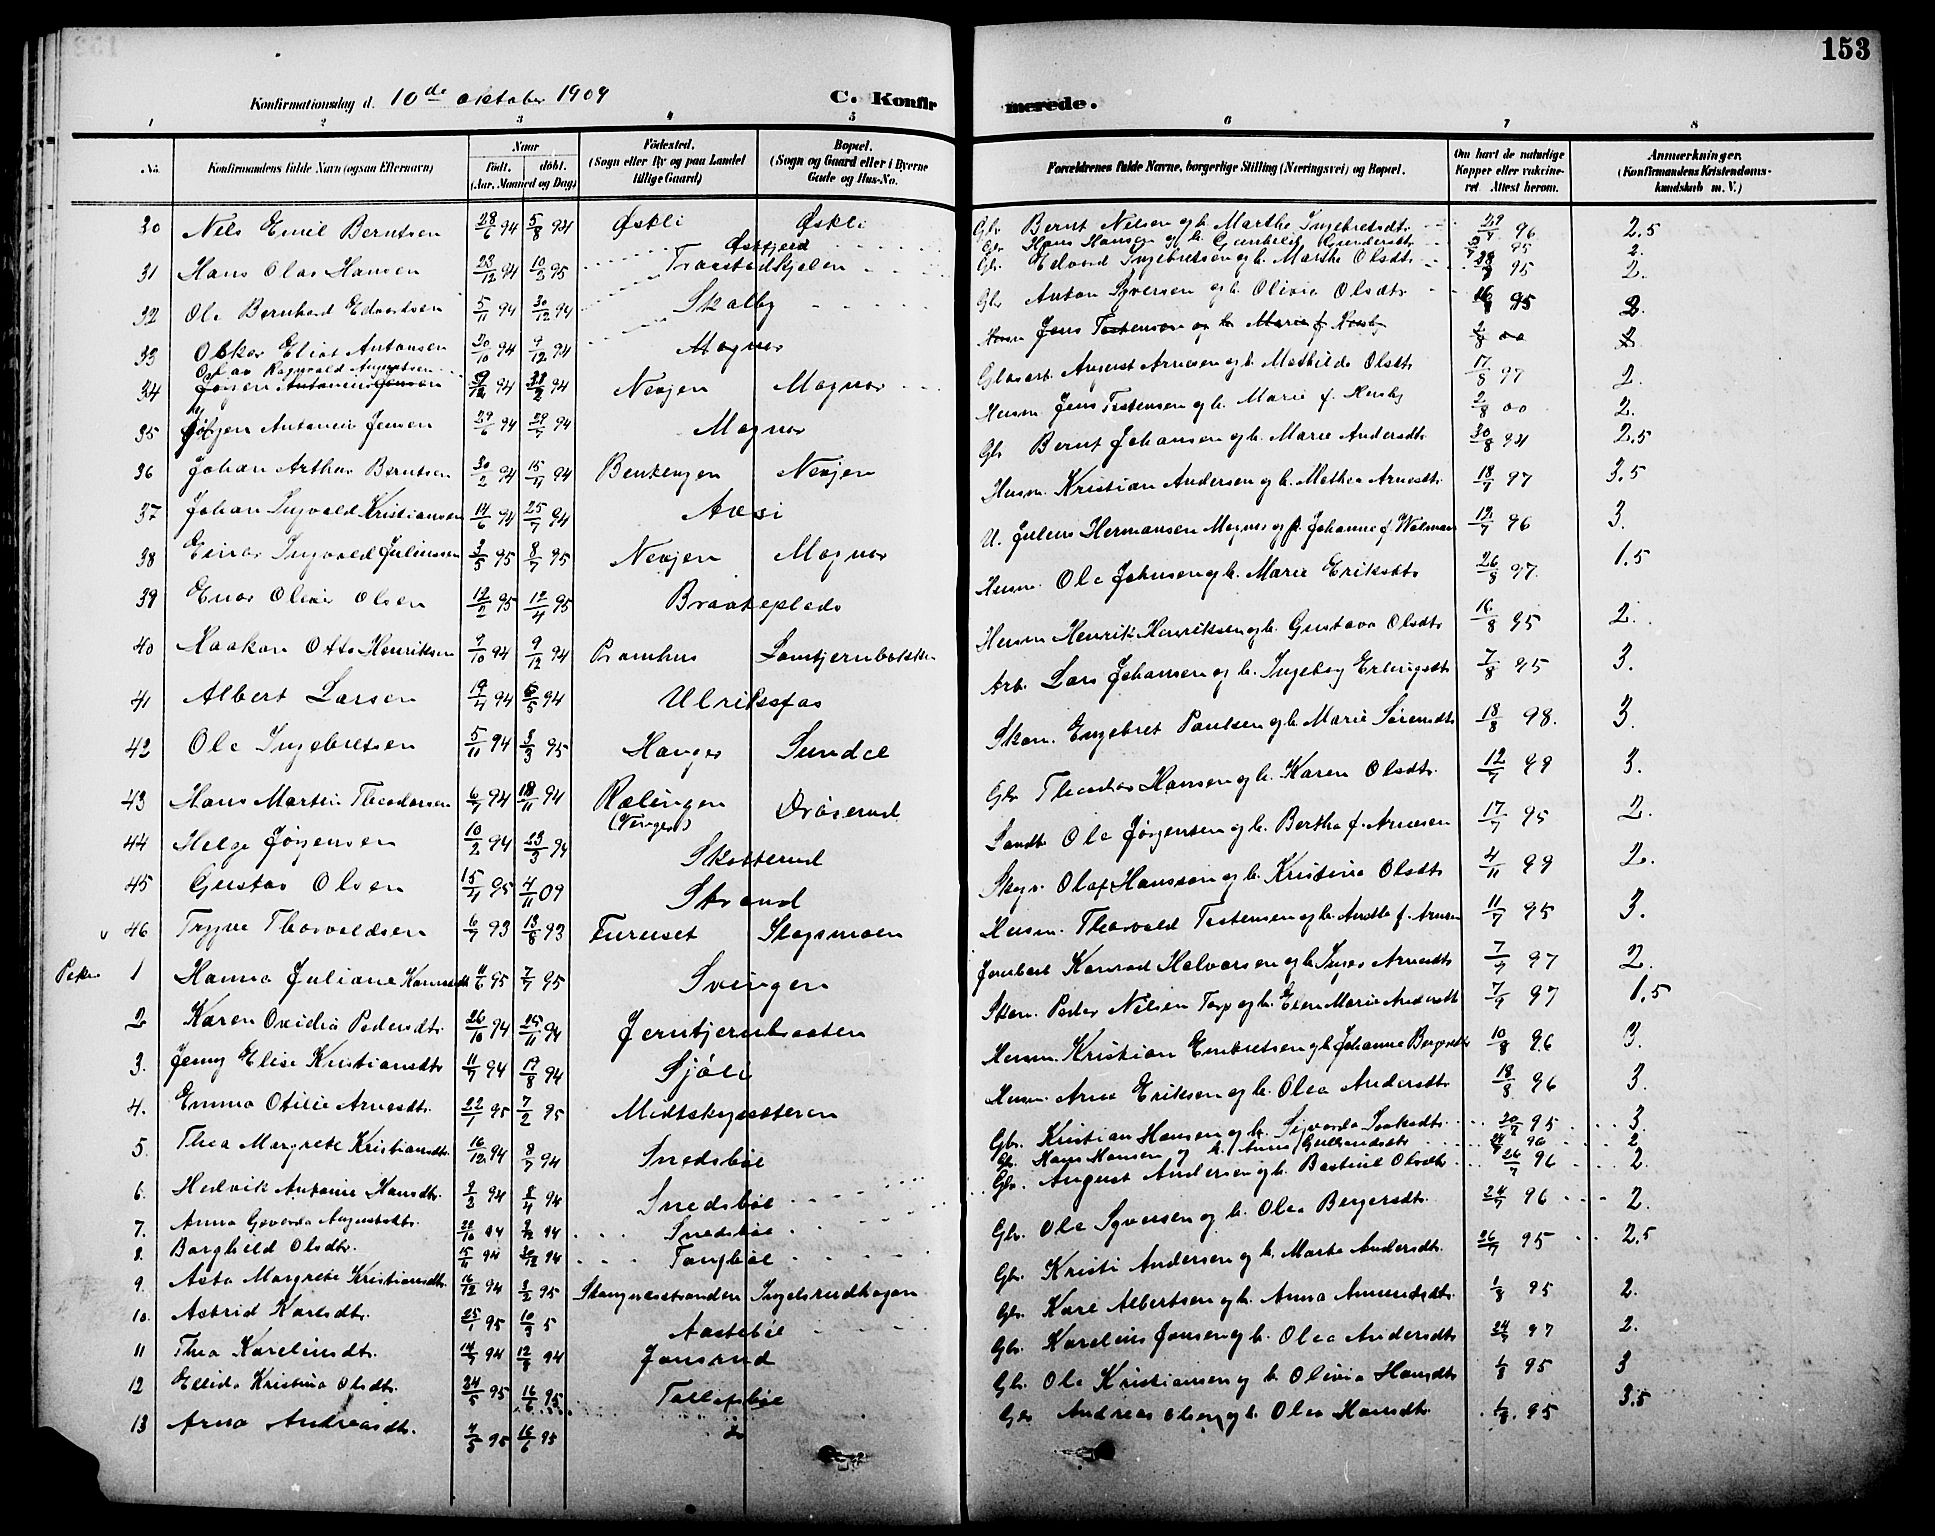 153
Konfirmationsdag d. 10de oktober 1909
C. Konfirmerede.
1 2 3 4 5 6 7 8
No. Konfirmandens fulde Navn (ogsaa Efternavn) Naar Födt. döbt. (Aar, Maaned og Dag) Födested. (Sogn eller By og paa Landet tillige Gaard) Bopæl. (Sogn og Gaard eller i Byerne Gade og Hus-No. Forældrenes fulde Navne, borgerlige Stilling (Næringsvei) og Bopæl. Om havt de naturlige Kopper eller vaccineret. Attest herom. Anmærkninger. (Konfirmandens Kristendomskundskab m. V.)
30 Nils Emil Berntsen 28/6 94 5/8 94 Øskli Øskli Gbr Bernt Nilsen og h. Marthe Ingebretsdtr 96 2.5
31 Hans Olaf Hansen 23/12 94 10/3 95 Østfjeld Gbr Hans Hansen og h. Gunhild Gundersdtr 95 2.
32 Ole Bernhard Edvardsen 5/11 94 30/12 94 Traastadkjølen Gbr. Edvard Ingebretsen og h. Marthe Olsdtr 95 2.
33 Oskar Eliot Antonsen 30/10 94 9/12 94 Skalby Gbr Anton Syversen og h. Olivia Olsdtr 95 2
Jens Torstensen og h. Marie f. 2/8 00 2
Olav Ragnvald Augustsen Magnor Glasarb. August Arnesen og h. Mathilde Olsdtr 17/8 97 2.
34 Jørgen Antonius Jensen
35 Jörgen Antonius Jensen 29/6 94 29/7 94 Nesjen Magnor Husm. Jens Torstensen og h. Marie f. 2/8 00 2.
36 Johan Arthur Berntsen 94 15/4 94 Magnor Gbr Bernt Johansen og h. Marie Andersdtr 30/8 94 2.5
37 Johan Ingvald Kristiansen 14/6 94 25/7 94 Benkengen Nesjen Husm. Kristian Andersen og h. Mathea Arnesdtr 18/7 97 3.5
38 Einar Ingvald Juliussen 3/5 95 8/7 95 Nesjen Magnor U. Julius Hermansen Magnor og p. Johanne f. 96 3.
39 Enar Olivir Olsen 12/2 95 12/4 95 Braateplads Husm. Ole Johnsen og h. Marie Eriksdtr 26/8 97. 1.5
40 Haakon Otto Henriksen 7/10 94 9/12 94 Pramhus Husm Henrik Henriksen og h. Gustava Olsdtr 16/8 95 2.
41 Albert Larsen 94 94 Ulriksfos Arb. Lars Johansen og h. Ingeborg Erlingsdtr 7/8 95 3.
42 Ole Ingebretsen 5/11 94 3/3 95 Hanger Sundel Skom. Engebret Paulsen og h. Marie Sörensdtr 18/8 98. 3.
43 Hans Martin Theodorsen 6/7 94 18/11 94 Rælingen Gbr Theodor Hansen og h. Karen Olsdtr. 12/7 99 3.
44 Helge Jörgensen 10/2 94 23/3 94 (Vinger) Skotterud Ole Jörgensen og h. Bertha f. Arnesen 17/7 95 2.
45 Gustav Olsen 15/4 95 4/11 09 Strand Olaf Hansson og h. Kristine Olsdtr 4/11 99 2.
v 46 Trygve Thorvaldsen 6/7 93 13/8 93 Furuset Skogsmoen Husm. Thorvald Torstensen og h. f. 11/7 95 3.
Piker 1 Hanna Juliane 95 7/7 95 Svingen Konrad Halvorsen og h. Arnesdtr 7/7 97 2.
2 Karen Ovidia Pedersdtr. 26/10 94 25/11 94 Jerntjernbraaten Skom. Peder Nilsen Torp og h. Elen Marie Andersdtr 7/7 97 1.5
3. Jenny Elise Kristiansdtr 11/7 94 19/8 94 Sjöli Husm. Kristian Embretsen og h. Johanne Bergersdtr 10/8 96 3.
4. Emma Otilie Arnesdtr. 22/1 95 7/2 95 Midtskogsæteren Husm. Arne Eriksen og h. Olea Andersdtr 18/8 96 3.
5. Thea Margrete Kristiansdtr. 16/12 94 8/7 94 Snedsböl Gbr. Kristian Hansen og h. 95 3.
6. Hedvik Antonie Hansdtr. 2/3 94 8/4 94 Snedsböl Gbr. Hans Hansen og h. Anne Gulbrandsdtr 96 2
7. Anna Augustsdtr. 94 94 Snedsböl Gbr. August Andersen og h. Bastine Olsdtr 26/7 96 2.
8. Borghild Olsdtr. 94 94 Tangböl Gbr. Ole Syversen og h. Olea Bergersdtr. 24/7 96 2.
9. Asta Margrete Kristiansdtr. 16/12 94 3/2 95 Skangnesstranden Ingelsrudhagen Gbr. Kristi Andersen og h. Marte Andersdtr. 26/7 95 2.5
10. Astrid Karlsdtr. 25/1 95 10/3 5 Aasteböl Gbr Karl Albertsen og h. Anna Amundsdtr 1/8 95 2.
11 Thea Karelinsdtr. 14/7 94 12/8 94 Jonsrud Gbr. Karelius Jonsen og h. Olea Andersdtr 24/7 97 2.
12 Ellida Kristine Olsdtr. 24/5 95 16/6 95 Tollefsböl Gbr. Ole Kristiansen og h. Olivia Hansdtr 1/8 95 3
13 Arna Andreasdtr. 95 16/6 95 do Gbr Andreas Olsen og h. Olea Hansdtr. 1/8 95 3.5